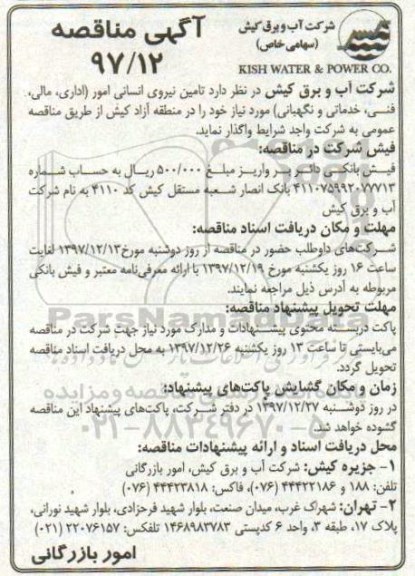 شرکت آب و برق کیش
(سهامی خاص)
KISH WATER & POWER CO.
آگهی مناقصه
۹۷/۱۲
شرکت آب و برق کیش در نظر دارد تامین نیروی انسانی امور (اداری، مالی،
فنی، خدماتی و نگهبانی) مورد نیاز خود را در منطقه آزاد کیش از طریق مناقصه
عمومی به شرکت واجد شرایط واگذار نماید.
فیش شرکت در مناقصه:
فیش بانکی دائر بر واریز مبلغ ۵۰۰/۰۰۰ ریال به حساب شماره
۴۱۱۰۷۵۹۹۲۰۷۷۷۱۳ بانک انصار شعبه مستقل کیش کد ۴۱۱۰ به نام شرکت
آب و برق کیش
مهلت و مکان دریافت اسناد مناقصه:
شرکت‌های داوطلب حضور در مناقصه از روز دوشنبه مورخ ۱۳۹۷/۱۲/۱۳ لغایت
ساعت ۱۶ روز یکشنبه مورخ ۱۳۹۷/۱۲/۱۹ با ارائه معرفی‌نامه معتبر و فیش بانکی
مربوطه به آدرس ذیل مراجعه نمایند.
مهلت تحویل پیشنهاد مناقصه:
پاکت دربسته محتوی پیشنهادات و مدارک مورد نیاز جهت شرکت در مناقصه
می‌بایستی تا ساعت ۱۳ روز یکشنبه ۱۳۹۷/۱۲/۲۶ به محل دریافت اسناد مناقصه
تحویل گردد.
زمان و مکان گشایش پاکت‌های پیشنهاد:
در روز دوشنبه ۱۳۹۷/۱۲/۲۷ در دفتر شرکت، پاکت‌های پیشنهاد این مناقصه
گشوده خواهد شد.
محل دریافت اسناد و ارائه پیشنهادات مناقصه:
۱- جزیره کیش: شرکت آب و برق کیش، امور بازرگانی
تلفن: ۱۸۸ و ۴۴۴۲۲۱۸۶ (۰۷۶)، فاکس: ۴۴۴۲۳۸۱۸ (۰۷۶)
۲- تهران: شهرک غرب، میدان صنعت، بلوار شهید فرحزادی، بلوار شهید نورانی،
پلاک ۱۷، طبقه ۳، واحد ۶ کدپستی ۱۴۶۸۹۸۳۷۸۳ تلفکس: ۲۲۰۷۶۱۵۷ (۰۲۱)
امور بازرگانی
ParsNamadData
۰۲۱-۸۸۳۴۹۶۷۰-۵